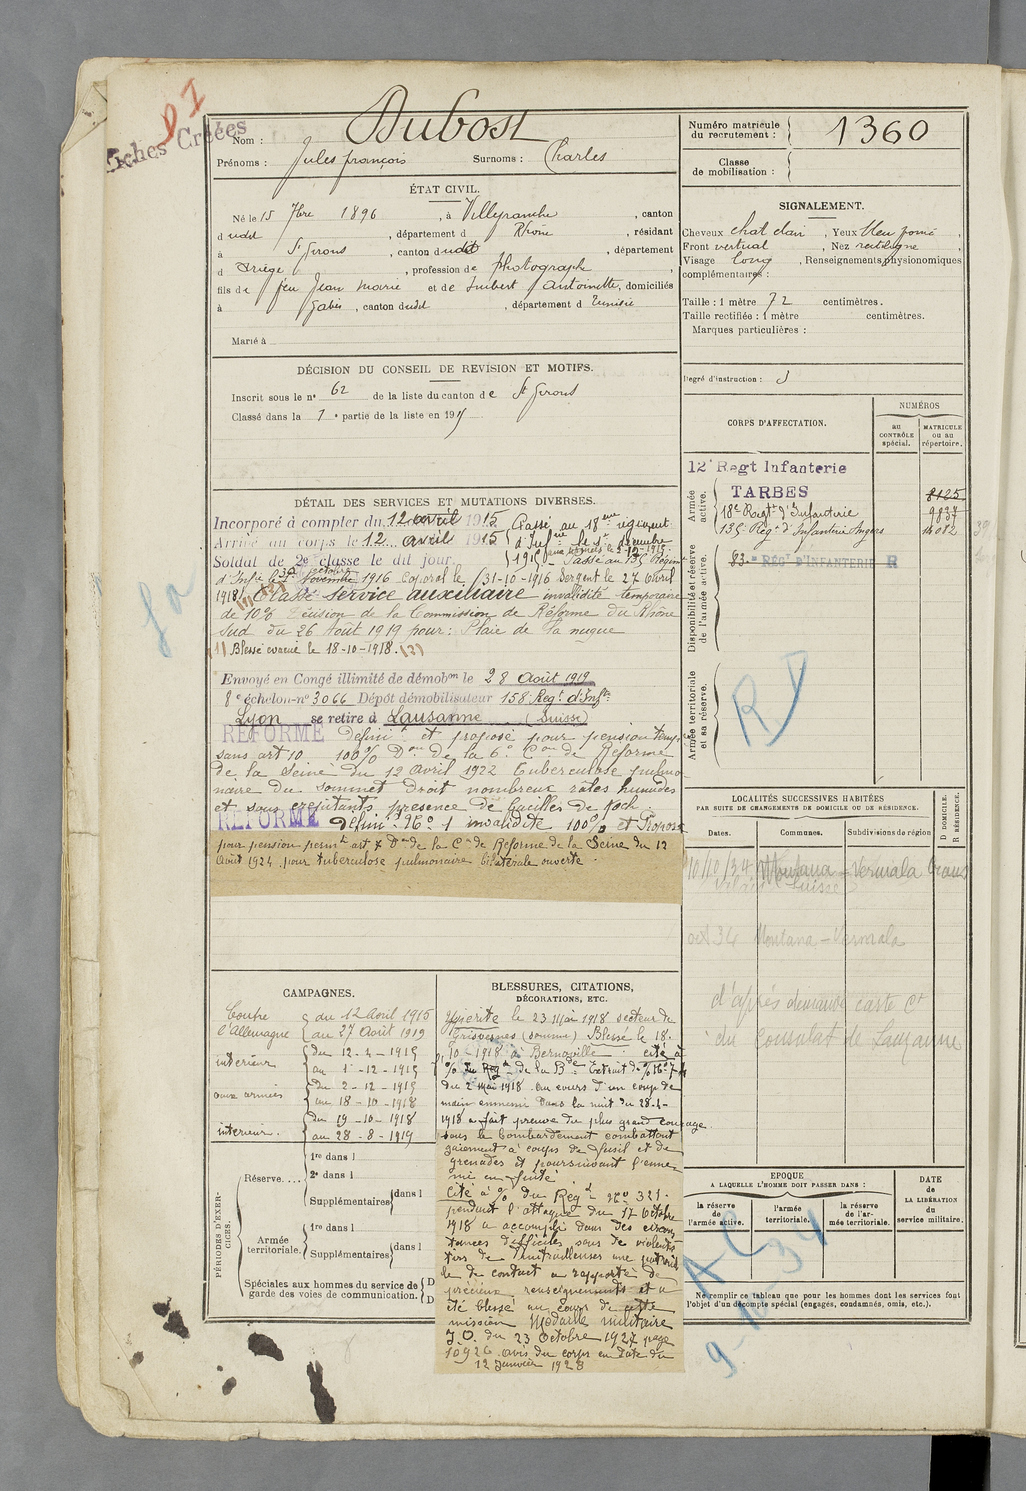 D I
Fiches Créées
Nom : Dubost
Prénoms : Jules françois Surnoms : Charles
Numéro matricule du recrutement : 1360
Classe de mobilisation :
ÉTAT CIVIL.
Né le 15 7bre 1896, à Villefranche, canton
dudit, département d Rhône, résidant
à St Girons, canton dudit, département
d Ariège, profession de photographe,
fils de feu Jean Marie et de Imbert Antoinette, domiciliés
à Gabès, canton dudit, département d Tunisie
Marié à
SIGNALEMENT.
Cheveux chat clair, Yeux bleu foncé,
Front vertical, Nez rectiligne,
Visage long, Renseignements physionomiques
complémentaires :
Taille : 1 mètre 72 centimètres.
Taille rectifiée : 1 mètre centimètres.
Marques particulières :
Degré d'instruction : 3
DÉCISION DU CONSEIL DE REVISION ET MOTIFS.
Inscrit sous le n° 62 de la liste du canton de St Girons
Classé dans la 1e partie de la liste en 1915
CORPS D'AFFECTATION.
NUMÉROS
au CONTRÔLE spécial.
MATRICULE ou au répertoire.
Armée active.
12e Regt Infanterie
TARBES 8125
18e Regt d'Infanterie 9837
135e Regt d'Infanterie Angers
Disponibilité et réserve de l'armée active.
83e RÉGT D'INFANTERIE R
Armée territoriale et sa réserve.
R D
DÉTAIL DES SERVICES ET MUTATIONS DIVERSES.
Incorporé à compter du 12 avril 1915 Passé au 18ème régiment
Arrivé au corps le 12 avril 1915 d'Infie le 1er décembre
Soldat de 2e classe le dit jour. 1915 Passé au 135 Régimt
d'Infie le novembre 1916 Caporal le 31-10-1916 Sergent le 27 avril
1918 Classé service auxiliaire invalidité temporaire
de 10% Décision de la Commission de Réforme du Rhône
Sud du 26 Août 1919 pour : Plaie de la nuque
(1) Blessé évacué le 18-10-1918.
Envoyé en Congé illimité de démobon le 28 Août 1919
8e échelon-n° 3066 Dépôt démobilisateur 158 Regt d'Infie
Lyon se retire à Lausanne (Suisse)
REFORMÉ définit et proposé pour pension temp
sans art 10 100% Don De la 6e Con de Réforme
de la Seine du 12 Avril 1922 Tuberculose pulmo
naire du sommet droit nombreux râles humides
et sous crépitants presence de bacilles de Koch.
REFORMÉ définit N° 1 invalidité 100% et Proposé
pour pension permte art 7 Don de la Con de Réforme de la Seine du 12
Août 1924 pour tuberculose pulmonaire bilatérale ouverte.
LOCALITÉS SUCCESSIVES HABITÉES
PAR SUITE DE CHANGEMENTS DE DOMICILE OU DE RÉSIDENCE.
Dates.
Communes.
Subdivisions de région
D DOMICILE.
R RÉSIDENCE.
10/10/34 Montana-Vermala Crans
Valais Suisse
oct 34 Montana-Vermala
d'après demande carte Ct
du Consulat de Lausanne
CAMPAGNES.
Contre l'Allemagne du 12 Avril 1915
au 27 Août 1919
intérieur du 12-4-1915
au 1-12-1915
aux armées du 2-12-1915
au 18-10-1918
intérieur. du 19-10-1918
au 28-8-1919
PÉRIODES D'EXERCICES.
Réserve....
1re dans l
2e dans l
Supplémentaires dans l
Armée territoriale.
1re dans l
Supplémentaires dans l
Spéciales aux hommes du service de garde des voies de communication. D
D
BLESSURES, CITATIONS,
DÉCORATIONS, ETC.
Ypérité le 23 Mai 1918 secteur de
Grivesnes (Somme) Blessé le 18.
10-1918 à Bernoville : cité à
l'o/ de la Bde Extrait
du 2 Mai 1918 Au cours d'un coup de
main ennemi dans la nuit du 28-4-
1918 a fait preuve du plus grand courage.
sous le bombardement combattant
gaiement à coups de fusil et de
grenades et poursuivant l'enne
mi en fuite
Cité à l'o/ du Régt N° 321.
pendant l'attaque du 17 Octobre
1918 a accompli dans des circons
tances difficiles sous de violents
tirs de mitrailleuses une patrouil
le de contact a rapporté de
précieux renseignements et a
été blessé au cours de cette
mission Médaille militaire
J.O. du 23 Octobre 1927 page
10926 avis du corps en date du
12 Janvier 1928
ÉPOQUE
A LAQUELLE L'HOMME DOIT PASSER DANS :
la réserve de l'armée active.
l'armée territoriale.
la réserve de l'armée territoriale.
DATE de LA LIBÉRATION du service militaire.
Ne remplir ce tableau que pour les hommes dont les services font
l'objet d'un décompte spécial (engagés, condamnés, omis, etc.).